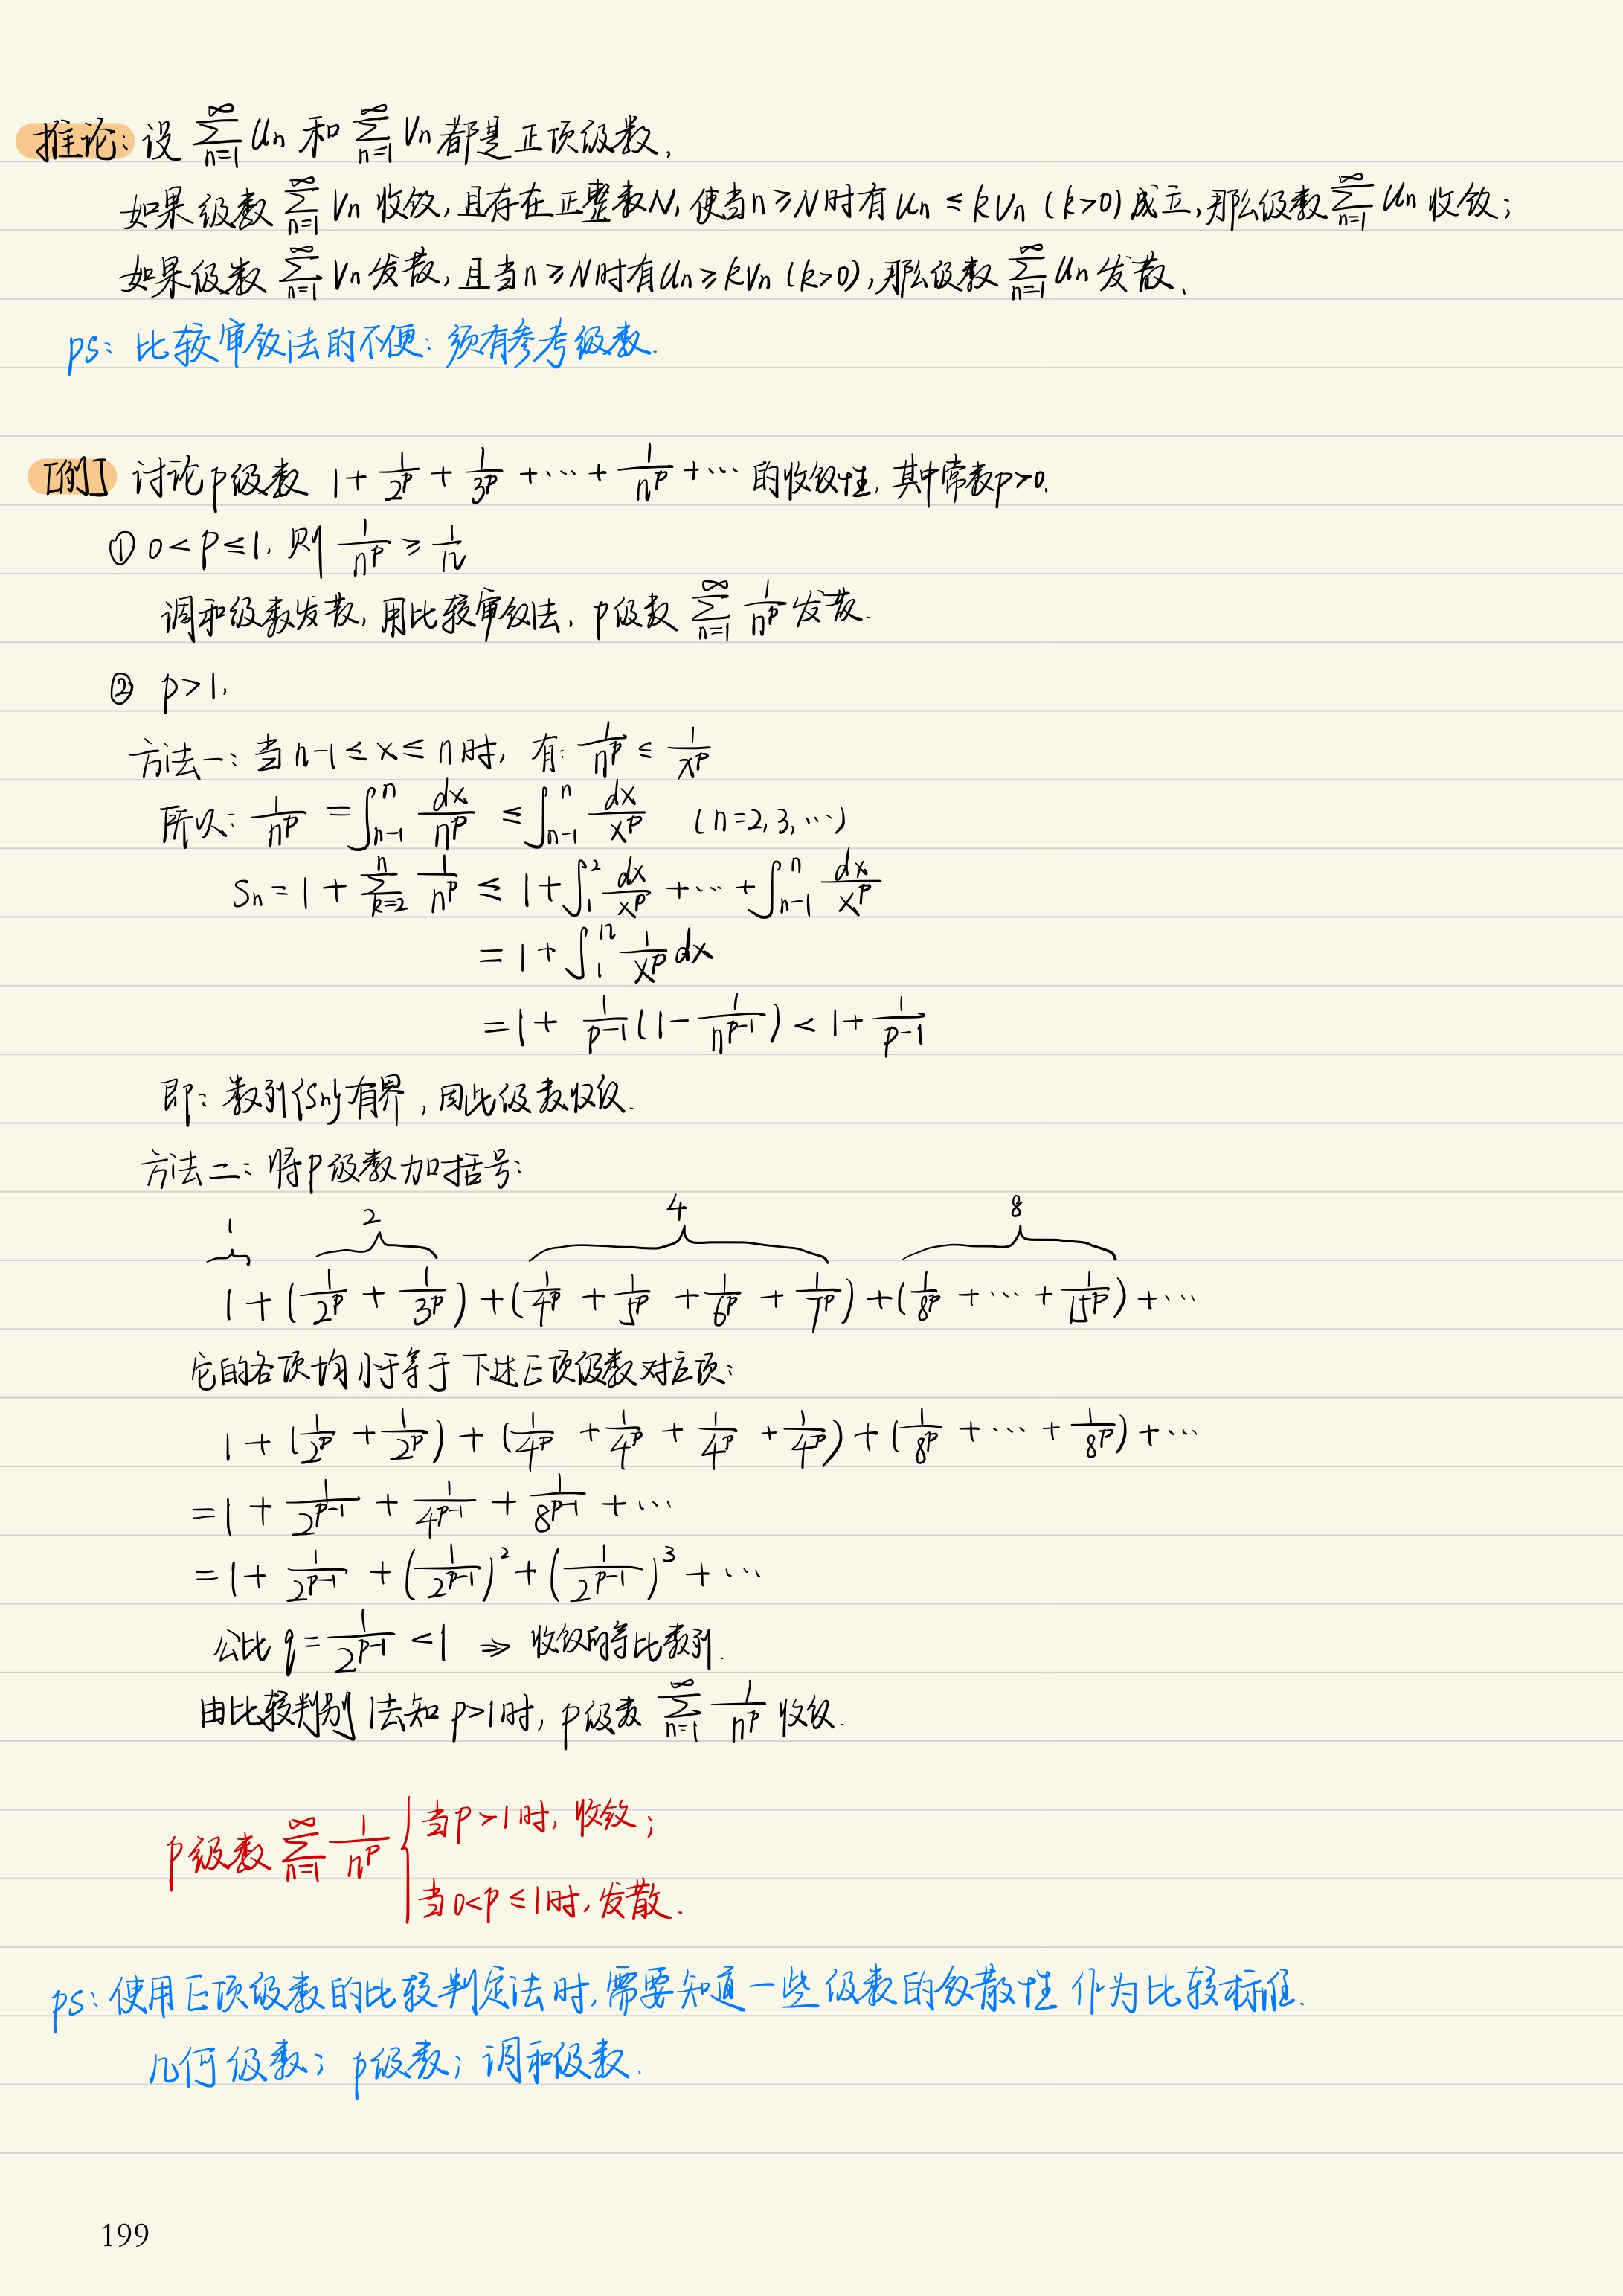 推论: 设 $\sum_{n=1}^{\infty} u_n$ 和 $\sum_{n=1}^{\infty} v_n$ 都是正项级数,
如果级数 $\sum_{n=1}^{\infty} v_n$ 收敛, 且存在正整数N, 使当 n≥N 时有 $u_n \le k v_n$ (k>0) 成立, 那么级数 $\sum_{n=1}^{\infty} u_n$ 收敛;
如果级数 $\sum_{n=1}^{\infty} v_n$ 发散, 且当 n≥N 时有 $u_n \ge k v_n$ (k>0), 那么级数 $\sum_{n=1}^{\infty} u_n$ 发散.
ps: 比较审敛法的不便: 须有参考级数.
[例] 讨论p级数 $1+\frac{1}{2^p}+\frac{1}{3^p}+\cdots+\frac{1}{n^p}+\cdots$ 的收敛性, 其中常数p>0.
① 0<p≤1, 则 $\frac{1}{n^p} \ge \frac{1}{n}$
调和级数发散, 用比较审敛法, p级数 $\sum_{n=1}^{\infty} \frac{1}{n^p}$ 发散.
② p>1,
方法一: 当 n-1≤x≤n 时, 有: $\frac{1}{n^p} \le \frac{1}{x^p}$
所以: $\frac{1}{n^p} = \int_{n-1}^{n} \frac{dx}{n^p} \le \int_{n-1}^{n} \frac{dx}{x^p}$ (n=2,3,⋯)
$S_n = 1+\sum_{k=2}^{n} \frac{1}{n^p} \le 1+\int_{1}^{2} \frac{dx}{x^p}+\cdots+\int_{n-1}^{n} \frac{dx}{x^p}$
$= 1+\int_{1}^{n} \frac{1}{x^p} dx$
$= 1+\frac{1}{p-1}(1-\frac{1}{n^{p-1}}) < 1+\frac{1}{p-1}$
即: 数列{Sn}有界, 因此级数收敛.
方法二: 将p级数加括号:
1 2 4 8
$1+(\frac{1}{2^p}+\frac{1}{3^p})+(\frac{1}{4^p}+\frac{1}{5^p}+\frac{1}{6^p}+\frac{1}{7^p})+(\frac{1}{8^p}+\cdots+\frac{1}{15^p})+\cdots$
它的各项均小于等于下述正项级数对应项:
$1+(\frac{1}{2^p}+\frac{1}{2^p})+(\frac{1}{4^p}+\frac{1}{4^p}+\frac{1}{4^p}+\frac{1}{4^p})+(\frac{1}{8^p}+\cdots+\frac{1}{8^p})+\cdots$
$= 1+\frac{1}{2^{p-1}}+\frac{1}{4^{p-1}}+\frac{1}{8^{p-1}}+\cdots$
$= 1+\frac{1}{2^{p-1}}+(\frac{1}{2^{p-1}})^2+(\frac{1}{2^{p-1}})^3+\cdots$
公比 $q=\frac{1}{2^{p-1}}<1$ ⇒ 收敛的等比数列.
由比较判别法知 p>1时, p级数 $\sum_{n=1}^{\infty} \frac{1}{n^p}$ 收敛.
p级数 $\sum_{n=1}^{\infty} \frac{1}{n^p}$ { 当p>1时, 收敛;
当0<p≤1时, 发散.
ps: 使用正项级数的比较判定法时, 需要知道一些级数的敛散性作为比较标准.
几何级数; p级数; 调和级数.
199